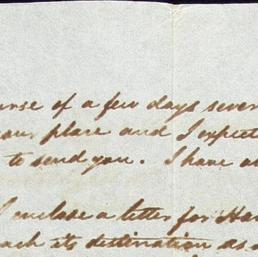 urse of a few days sever
our place and I expect
to send you. I have a
I enclose a letter for Har
each its destination as s